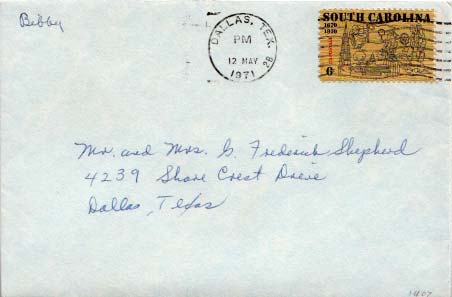 Bebby
DALLAS, TEX.
PM
12 MAY
1971
28
SOUTH CAROLINA
1670
1970
6
Mr. and Mrs. G. Frederick Shepherd
4239 Shore Crest Drive
Dallas, Texas